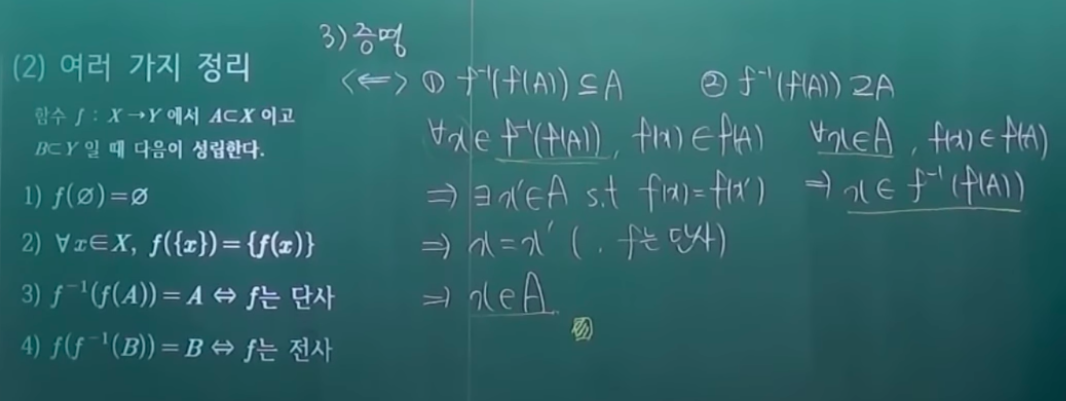 (2) 여러 가지 정리
함수 f : X→Y 에서 A⊂X 이고
B⊂Y 일 때 다음이 성립한다.
1) f(∅)=∅
2) ∀x∈X, f({x})={f(x)}
3) f⁻¹(f(A))=A ⇔ f는 단사
4) f(f⁻¹(B))=B ⇔ f는 전사
3) 증명
<⇐> ① f⁻¹(f(A))⊆A
∀x∈f⁻¹(f(A)), f(x)∈f(A)
⇒ ∃x'∈A s.t f(x)=f(x')
⇒ x=x' (∵ f는 단사)
⇒ x∈A
② f⁻¹(f(A))⊇A
∀x∈A, f(x)∈f(A)
⇒ x∈f⁻¹(f(A))